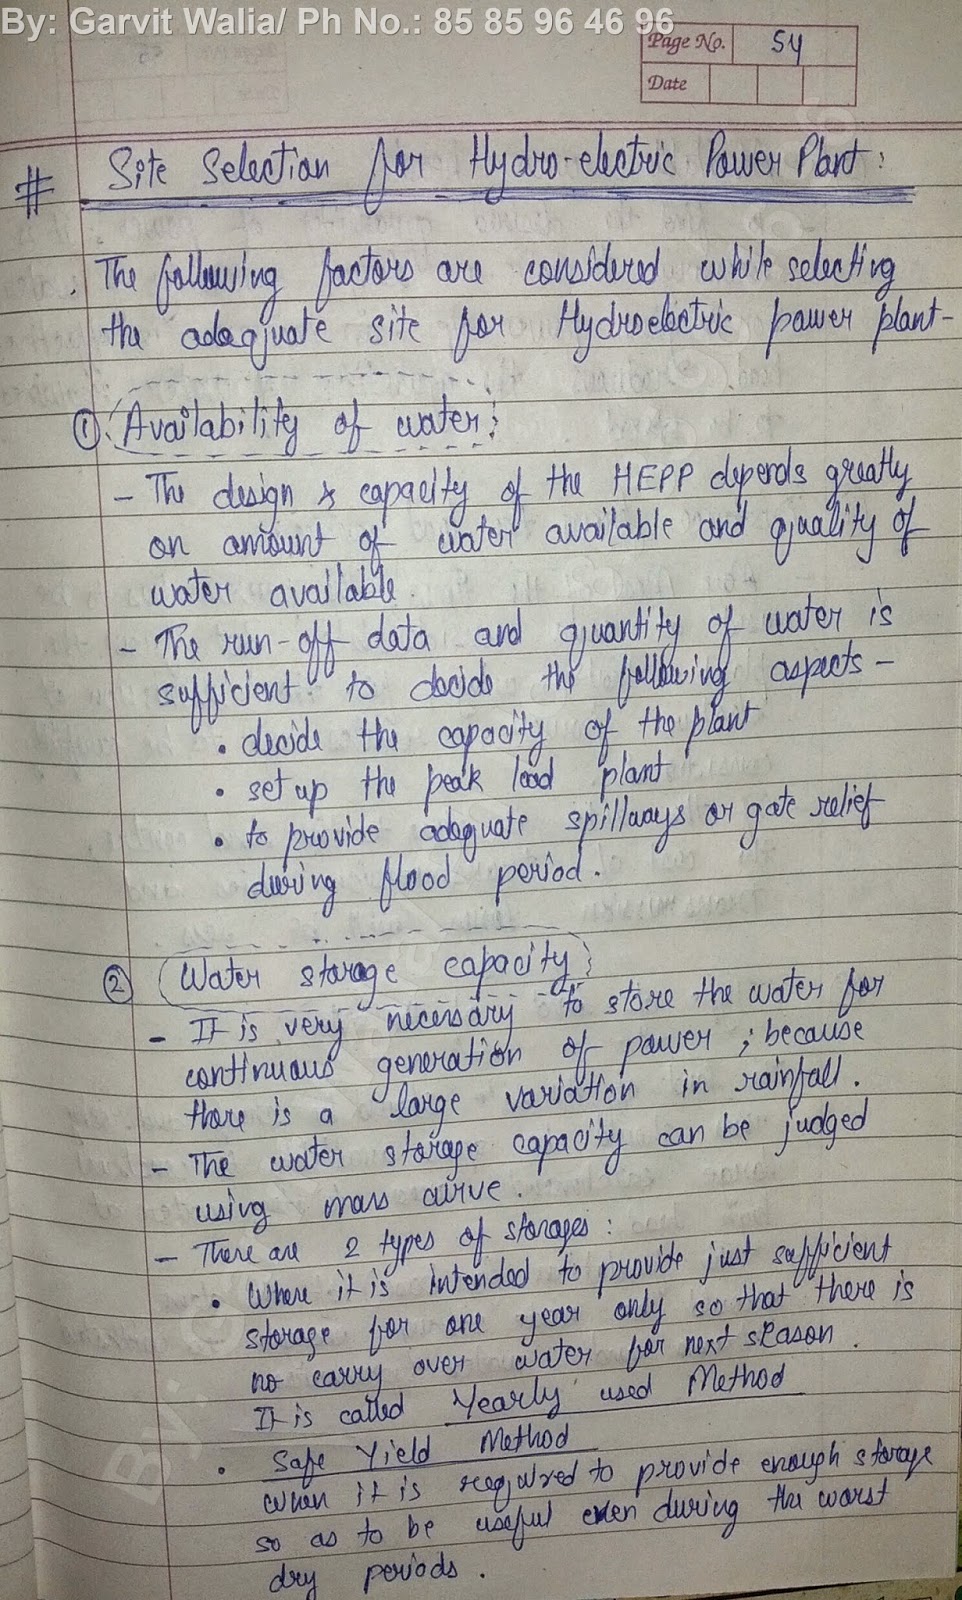 By: Garvit Walia/ Ph No.: 85 85 96 46 96
Page No. 54
Date
# Site Selection for Hydro-electric Power Plant:
The following factors are considered while selecting
the adequate site for Hydroelectric power plant-
① Availability of water:
- The design & capacity of the HEPP depends greatly
on amount of water available and quality of
water available.
- The run-off data and quantity of water is
sufficient to decide the following aspects-
• decide the capacity of the plant
• set up the peak load plant
• to provide adequate spillways or gate relief
during flood period.
② Water storage capacity:
- It is very necessary to store the water for
continuous generation of power; because
there is a large variation in rainfall.
- The water storage capacity can be judged
using mass curve.
- There are 2 types of storages:
• Where it is intended to provide just sufficient
storage for one year only so that there is
no carry over water for next season.
It is called Yearly used Method
• Safe Yield Method
When it is required to provide enough storage
so as to be useful even during the worst
dry periods.